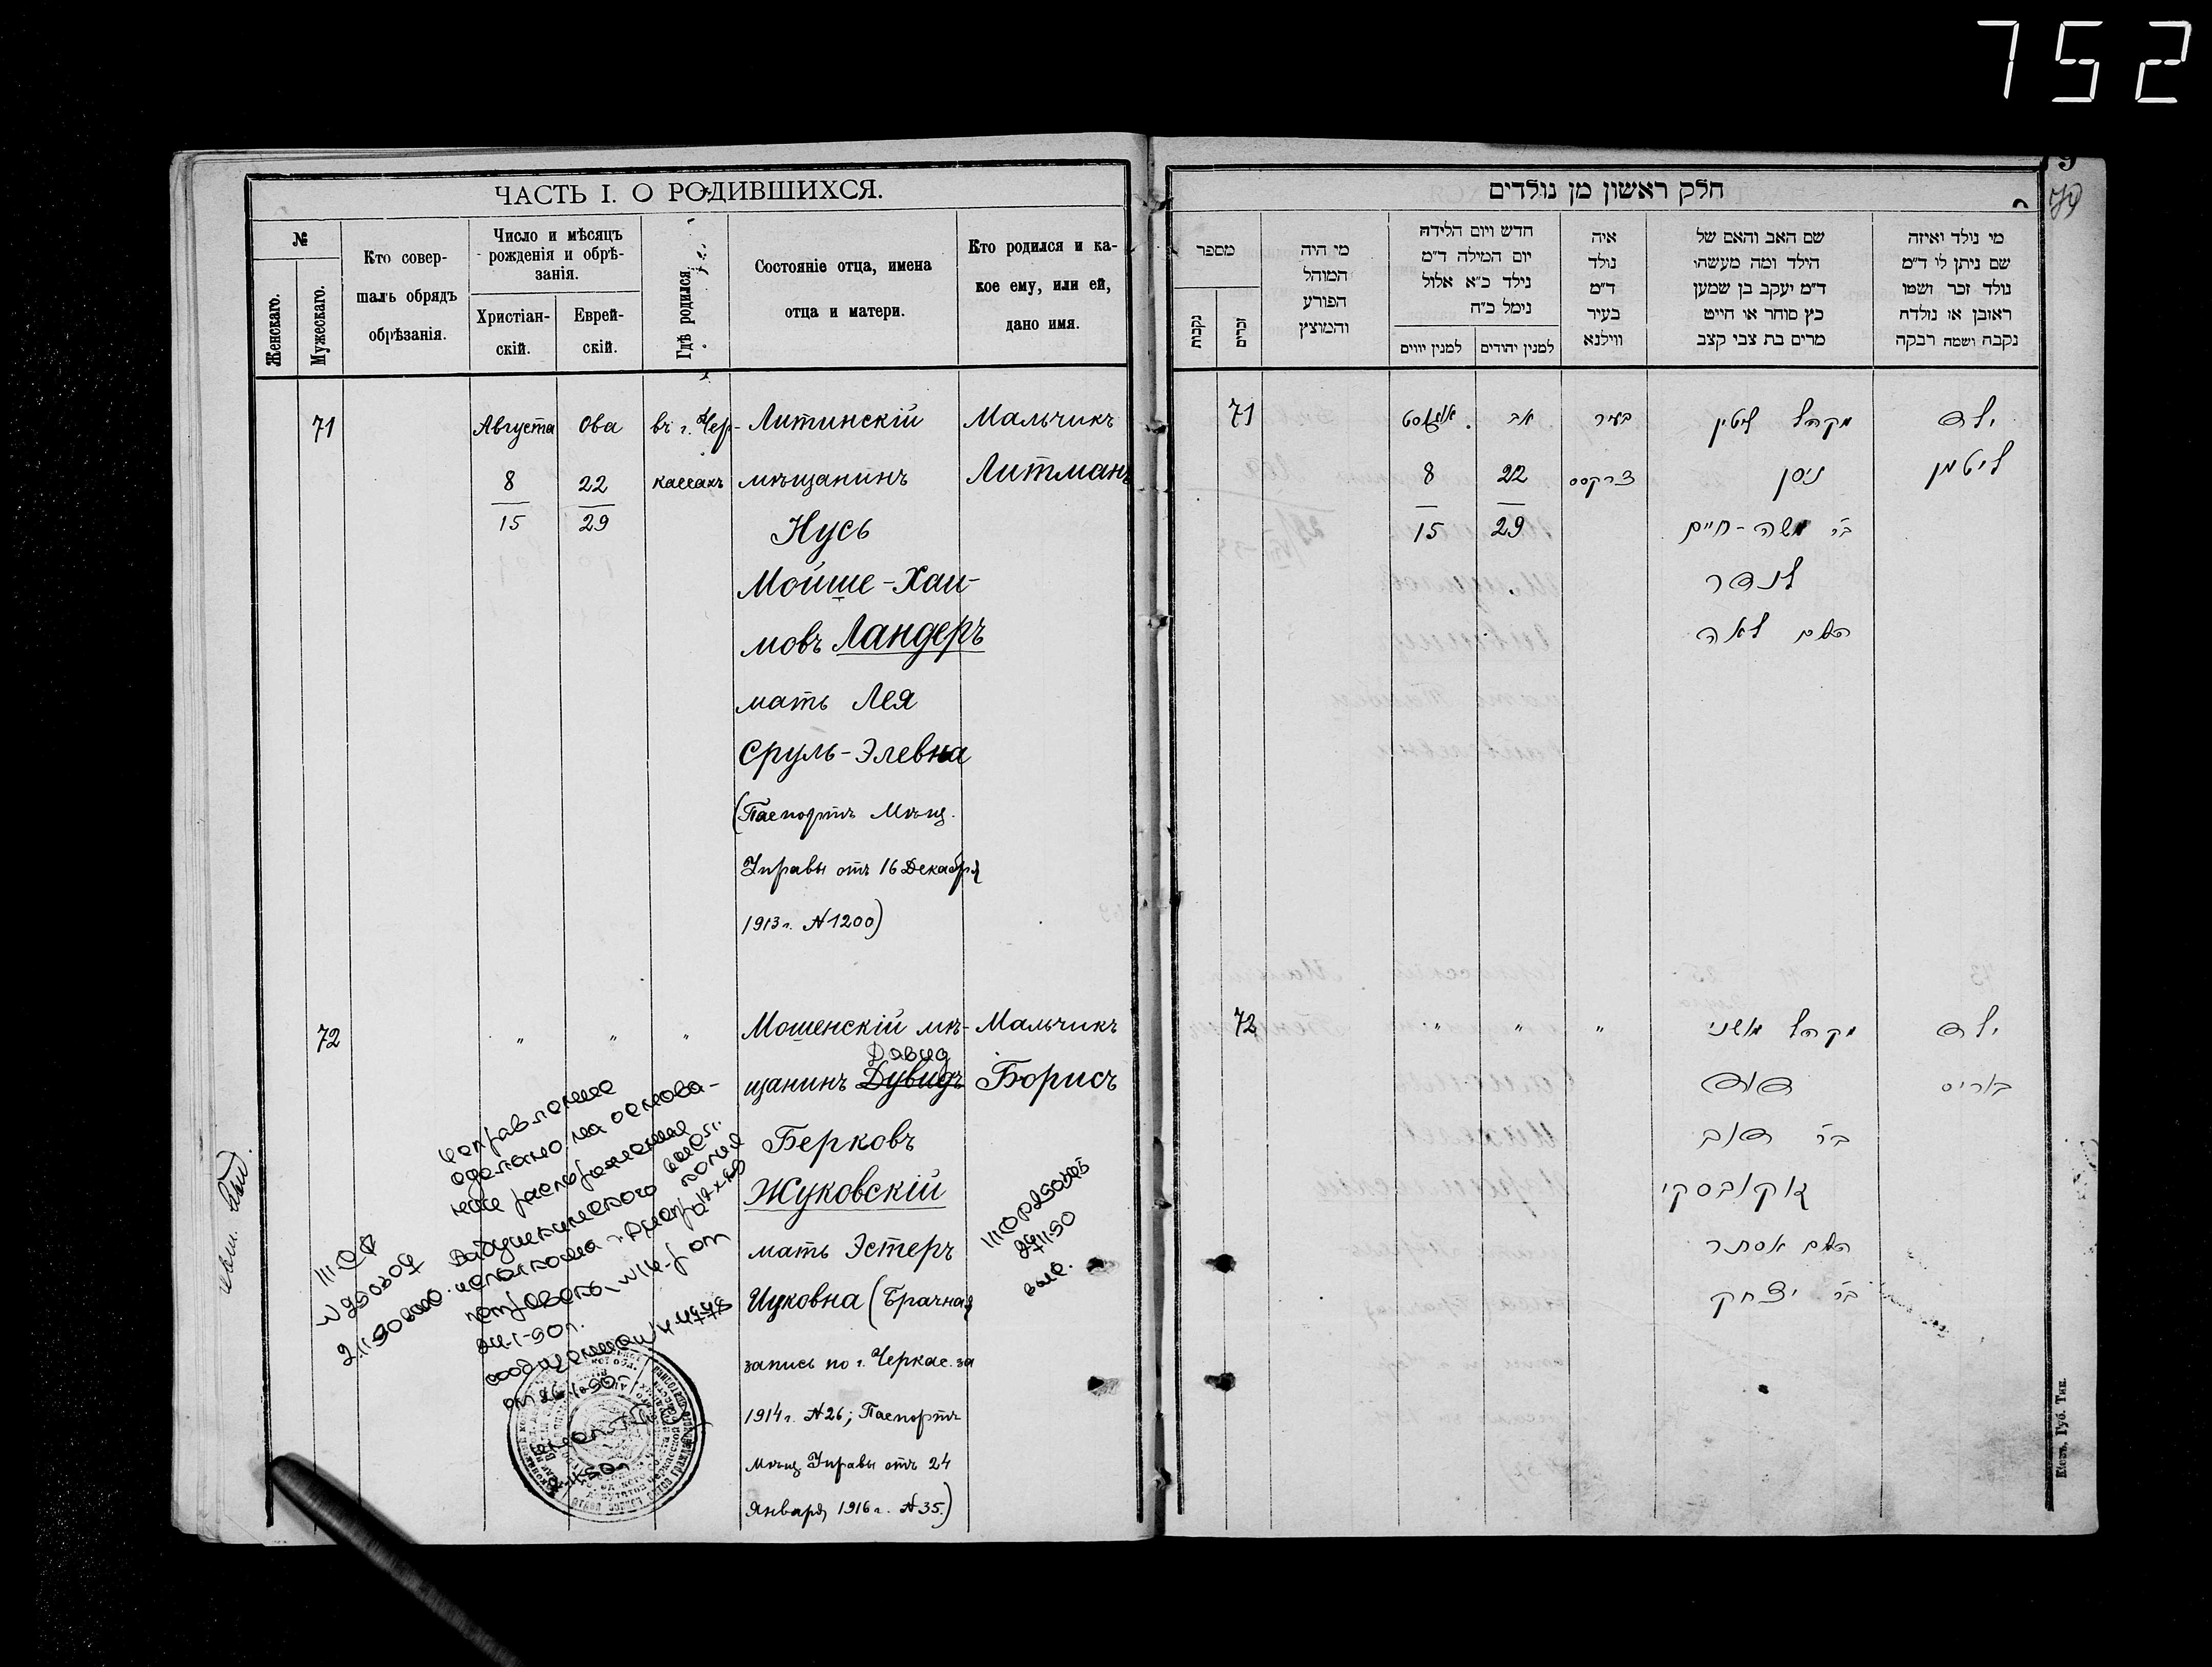 752
ЧАСТЬ I. О РОДИВШИХСЯ.
№
Женскаго.
Мужескаго.
Кто совер-
шалъ обрядъ
обрѣзанія.
Число и мѣсяцъ
рожденія и обрѣ-
занія.
Христіан-
скій.
Еврей-
скій.
Гдѣ родился.
Состояніе отца, имена
отца и матери.
Кто родился и ка-
кое ему, или ей,
дано имя.
71
Августа
8
15
Ова
22
29
въ г. Чер-
кассахъ
Литинскій
мѣщанинъ
Нусь
Мойше-Хаи-
мовъ Ландеръ
мать Лея
Сруль-Элевна
(Паспортъ Мѣщ.
Управы отъ 16 Декабря
1913 г. № 1200)
Мальчикъ
Литманъ
72
"
"
"
Мошенскій мѣ-
Давид
щанинъ Дувидъ
Берковъ
Жуковскій
мать Эстеръ
Ицковна (Брачная
запись по г. Черкас. за
1914 г. № 26; Паспортъ
Мѣщ Управы отъ 24
Января 1916 г. № 35.)
Мальчикъ
Борисъ
исправление
сделано на основа-
חלק ראשון מן נולדים
מספר
נקבות
זכרים
מי היה
המוהל
הפורע
והמוצץ
חדש ויום הלידה
יום המילה ד״מ
נילד כ״א אלול
נימל כ״ח
למנין יווים
למנין יהודים
איה
נולד
ד״מ
בעיר
ווילנא
שם האב והאם של
הילד ומה מעשהו
ד״מ יעקב בן שמען
כץ סוחר או חייט
מרים בת צבי קצב
מי נולד ואיזה
שם ניתן לי ד״מ
נולד זכר ושמו
ראובן או נולדה
נקבה ושמה רבקה
71
אויגוסט
8
15
אב
22
29
בעיר
צרקסס
מקהל ליטין
ניסן
בר משה-חיים
לנדר
האם לאה
ילד
ליטמן
72
"
"
"
מקהל מושני
דוד
בר דוב
זוקובסקי
האם אסתר
בר יצחק
ילד
בוריס
Кіевъ. Губ. Тип.